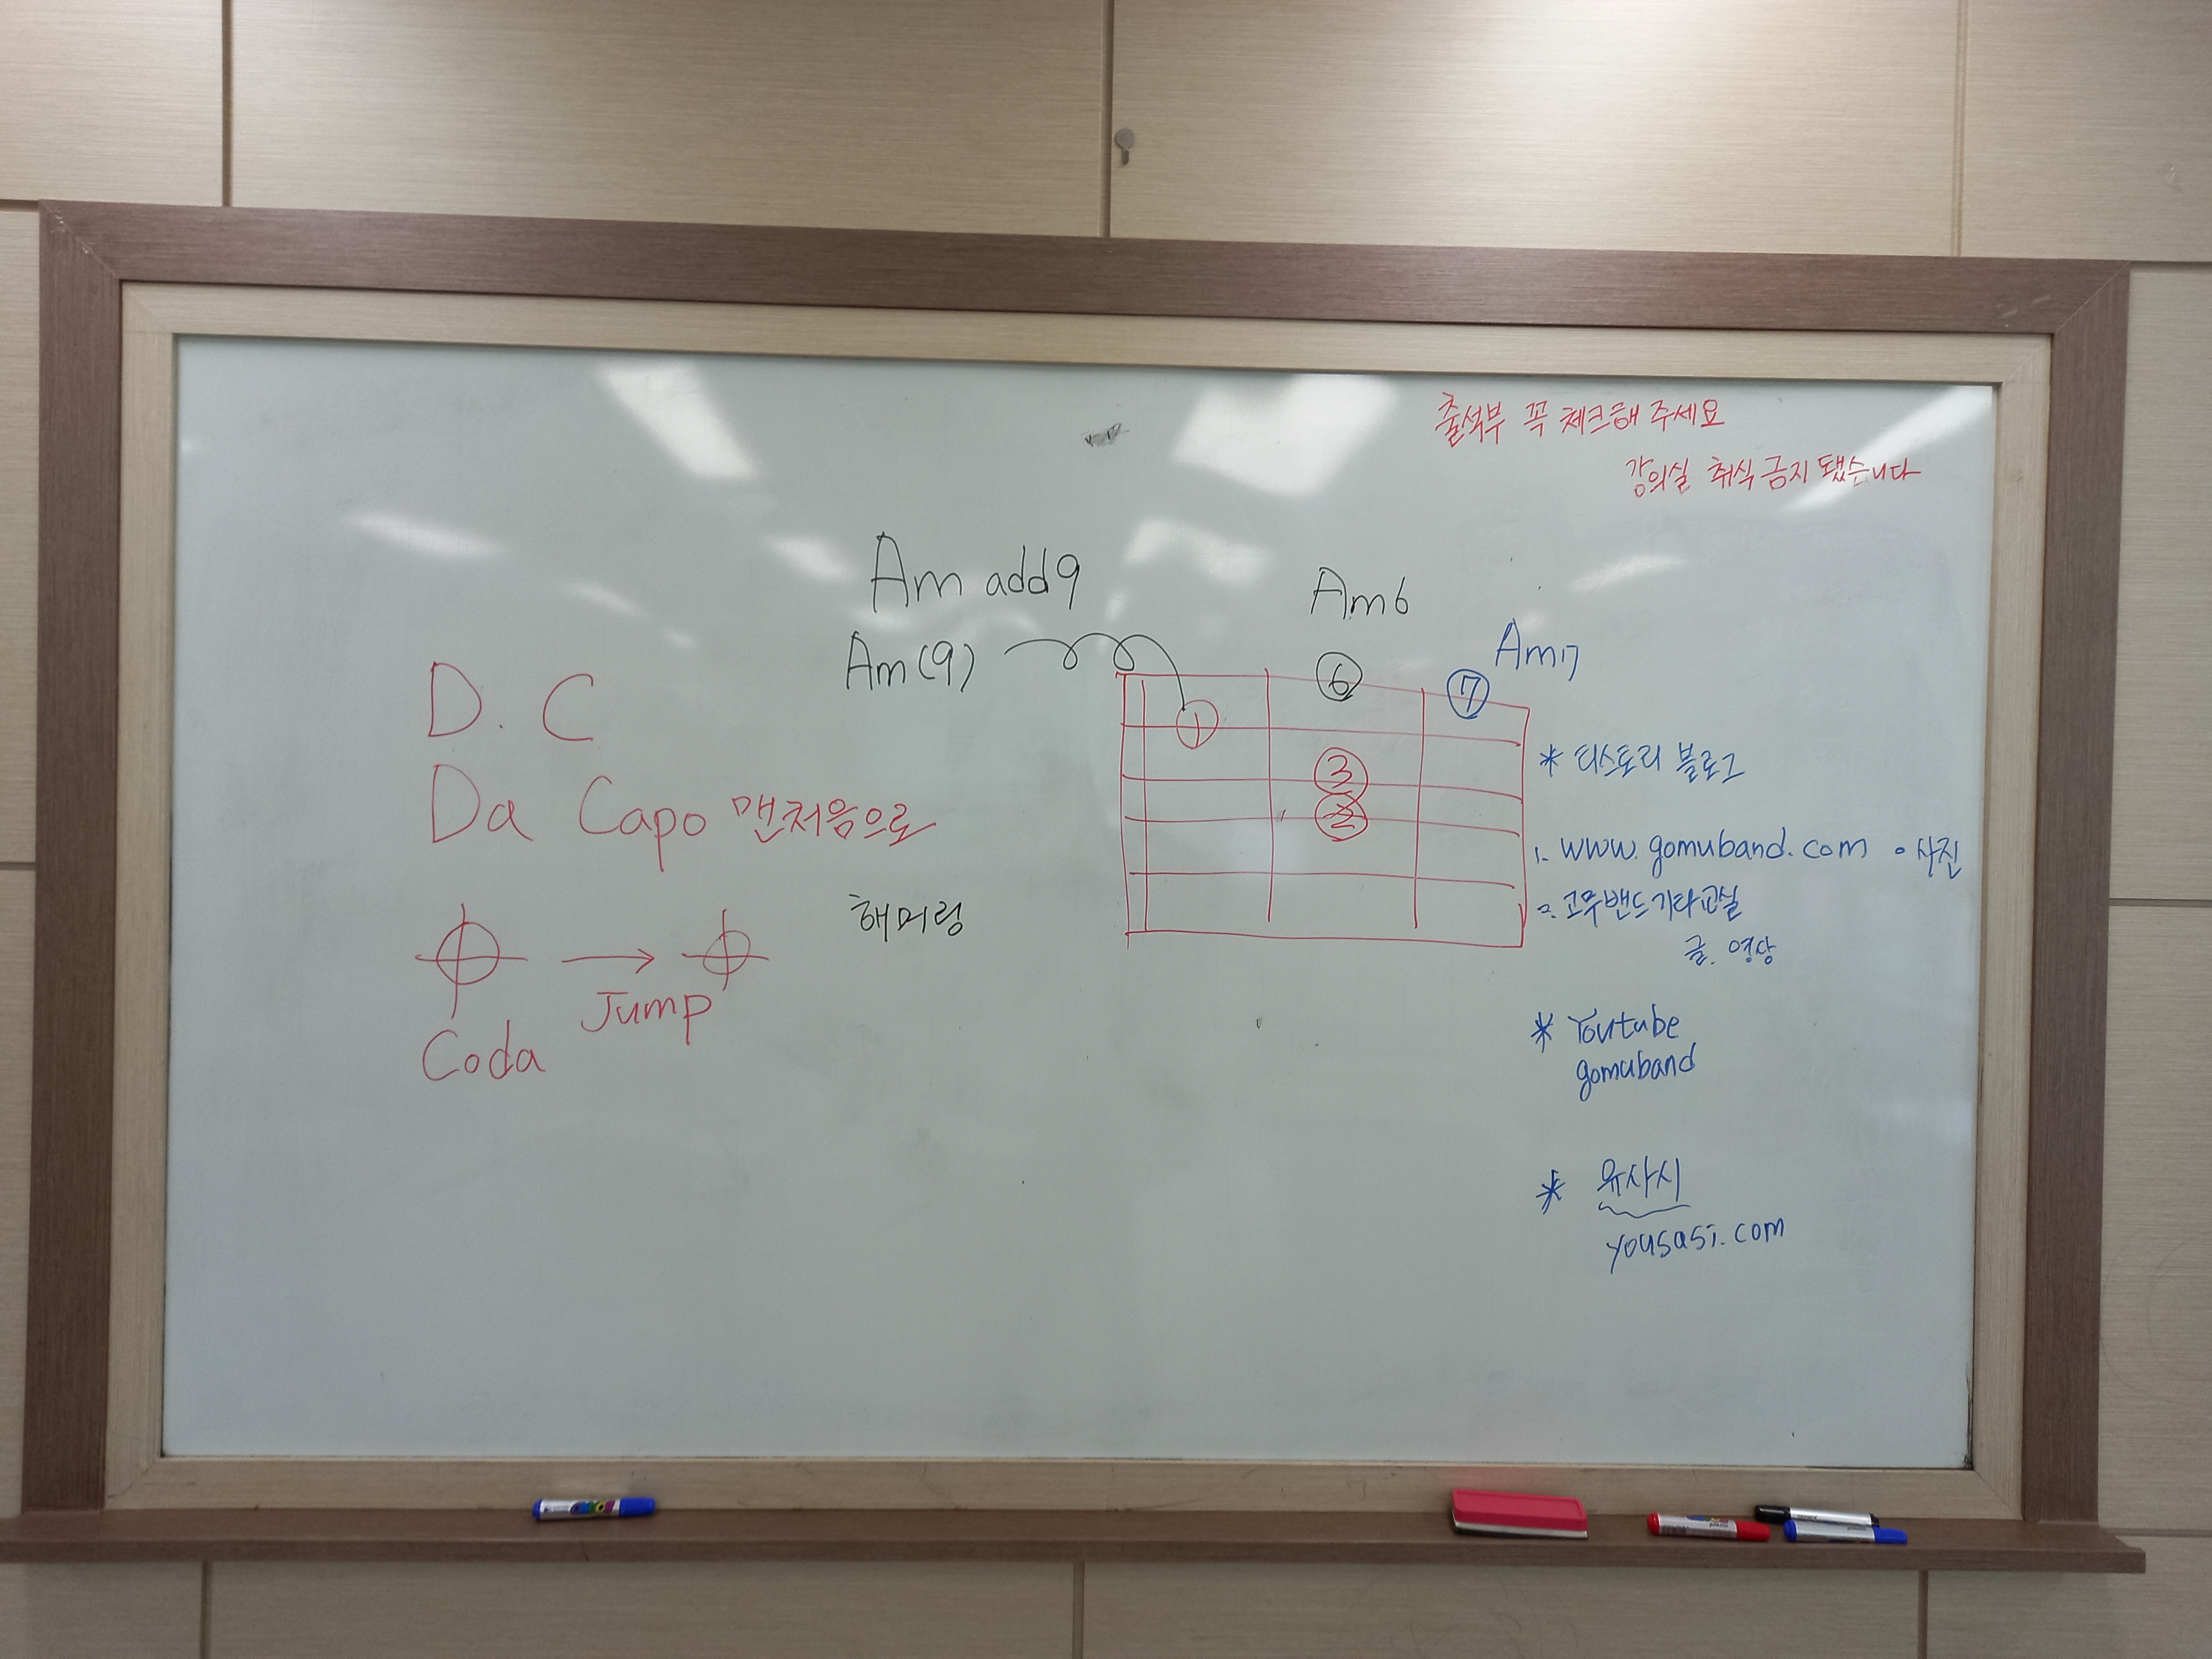 출석부 꼭 체크해 주세요
강의실 취식 금지 됐습니다
Am add9
Am(9)
Am6
Am7
⑥
⑦
①
③
②
D.C
Da Capo 맨처음으로
Jump
Coda
해머링
* 티스토리 블로그
1. www.gomuband.com • 사진
2. 고무밴드기타교실
글. 영상
* Youtube
gomuband
* 유사시
yousasi.com